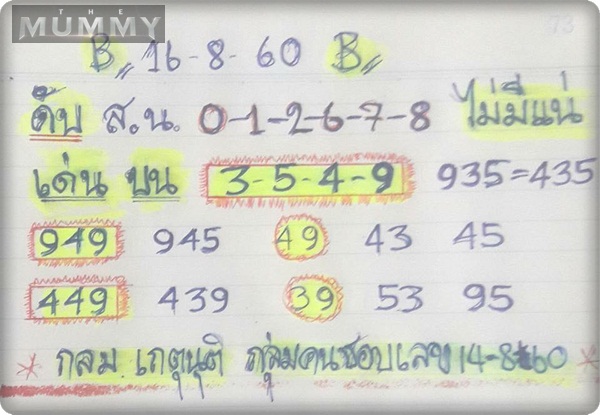 THE
MUMMY
73
B 16-8-60 B
ดับ ส.น. 0-1-2-6-7-8 ไม่มีแน่
เด่น บน 3-5-4-9 935=435
949 945 49 43 45
449 439 39 53 95
* กลม. เกตุนุติ กลุ่มคนชอบเลข 14-8-60 *